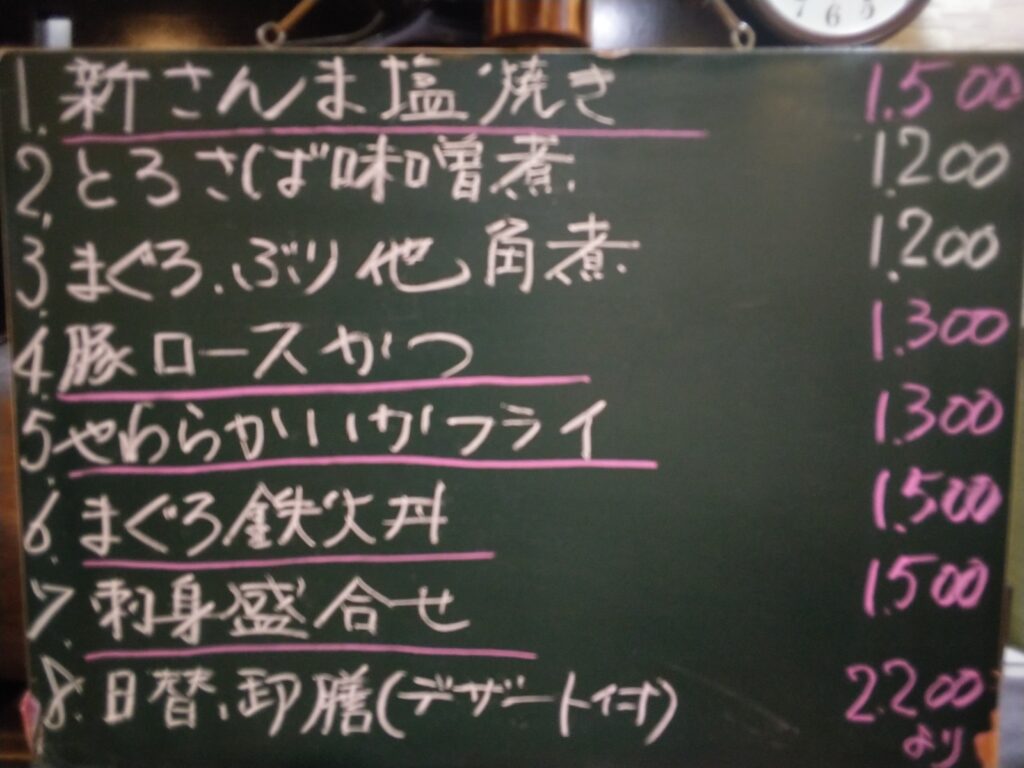 7 6 5
1. 新さんま塩焼き 1.500
2. とろさば味噌煮 1.200
3. まぐろ、ぶり他角煮 1.200
4. 豚ロースかつ 1.300
5. やわらかいいかフライ 1.300
6. まぐろ鉄火丼 1.500
7. 刺身盛合せ 1.500
8. 日替、御膳(デザート付) 2.200
より